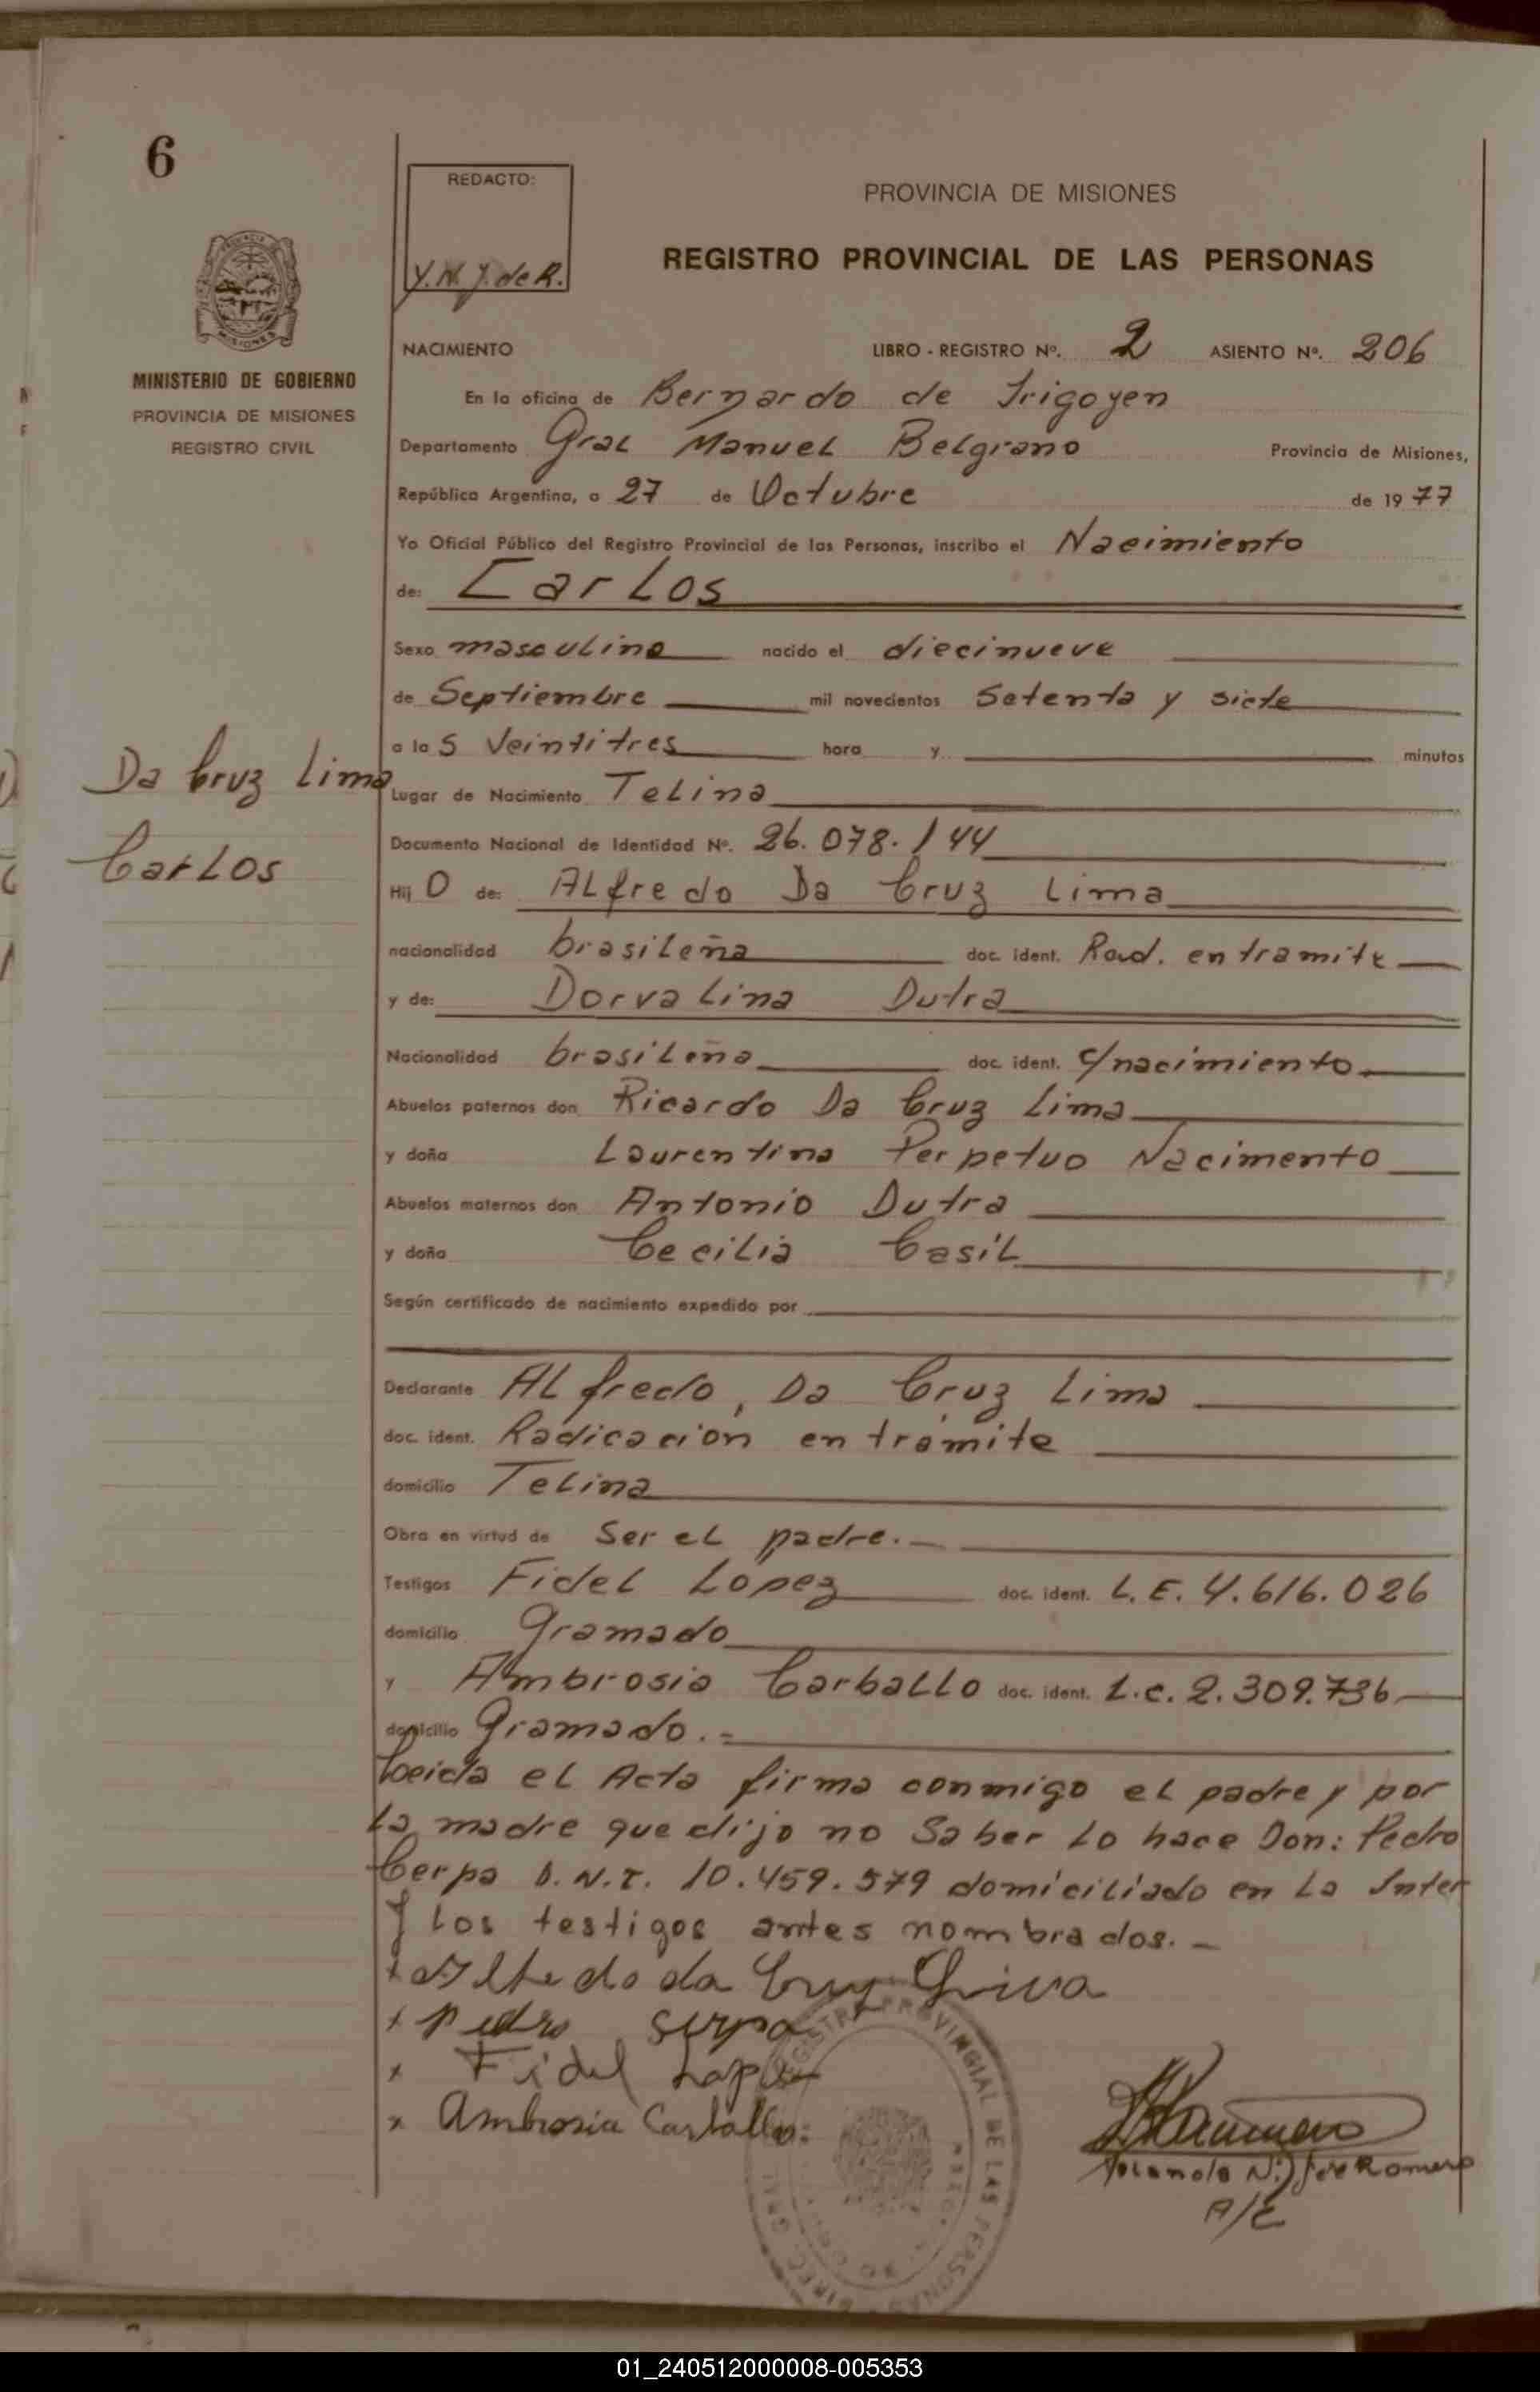 6
REDACTO:
Y.N.J. de R.
PROVINCIA DE MISIONES
REGISTRO PROVINCIAL DE LAS PERSONAS
MINISTERIO DE GOBIERNO
PROVINCIA DE MISIONES
REGISTRO CIVIL
NACIMIENTO LIBRO - REGISTRO Nº. 2 ASIENTO Nº. 206
En la oficina de Bernardo de Irigoyen
Departamento Gral Manuel Belgrano Provincia de Misiones,
República Argentina, a 27 de Octubre de 1977
Yo Oficial Público del Registro Provincial de las Personas, inscribo el Nacimiento
de: Carlos
Sexo masculino nacido el diecinueve
de Septiembre mil novecientos Setenta y siete
a las Veintitres hora y minutos
Da Cruz Lima
Carlos
Lugar de Nacimiento Telina
Documento Nacional de Identidad Nº. 26.078.144
Hijo de: Alfredo Da Cruz Lima
nacionalidad brasileña doc. ident. Rad. en tramite
y de: Dorvalina Dutra
Nacionalidad brasileña doc. ident. c/nacimiento
Abuelos paternos don Ricardo Da Cruz Lima
y doña Laurentina Perpetuo Nacimento
Abuelos maternos don Antonio Dutra
y doña Cecilia Casil
Según certificado de nacimiento expedido por
Declarante Alfredo, Da Cruz Lima
doc. ident. Radicación en trámite
domicilio Telina
Obra en virtud de Ser el padre.-
Testigos Fidel López doc. ident. L.E. 4.616.026
domicilio Gramado
y Ambrosia Carballo doc. ident. L.C. 2.309.736
domicilio Gramado.-
Leida el Acta firma conmigo el padre y por
la madre que dijo no Saber lo hace Don: Pedro
Cerpa D.N.I. 10.459.579 domiciliado en La Inter
y los testigos antes nombrados.-
+ Alfredo da Cruz
+ Pedro serpa
x Fidel Lopez
x Ambrosia Carballo:
REGISTRO PROVINCIAL DE LAS PERSONAS
Yolanda N. J. de Romero
A/C
01_240512000008-005353